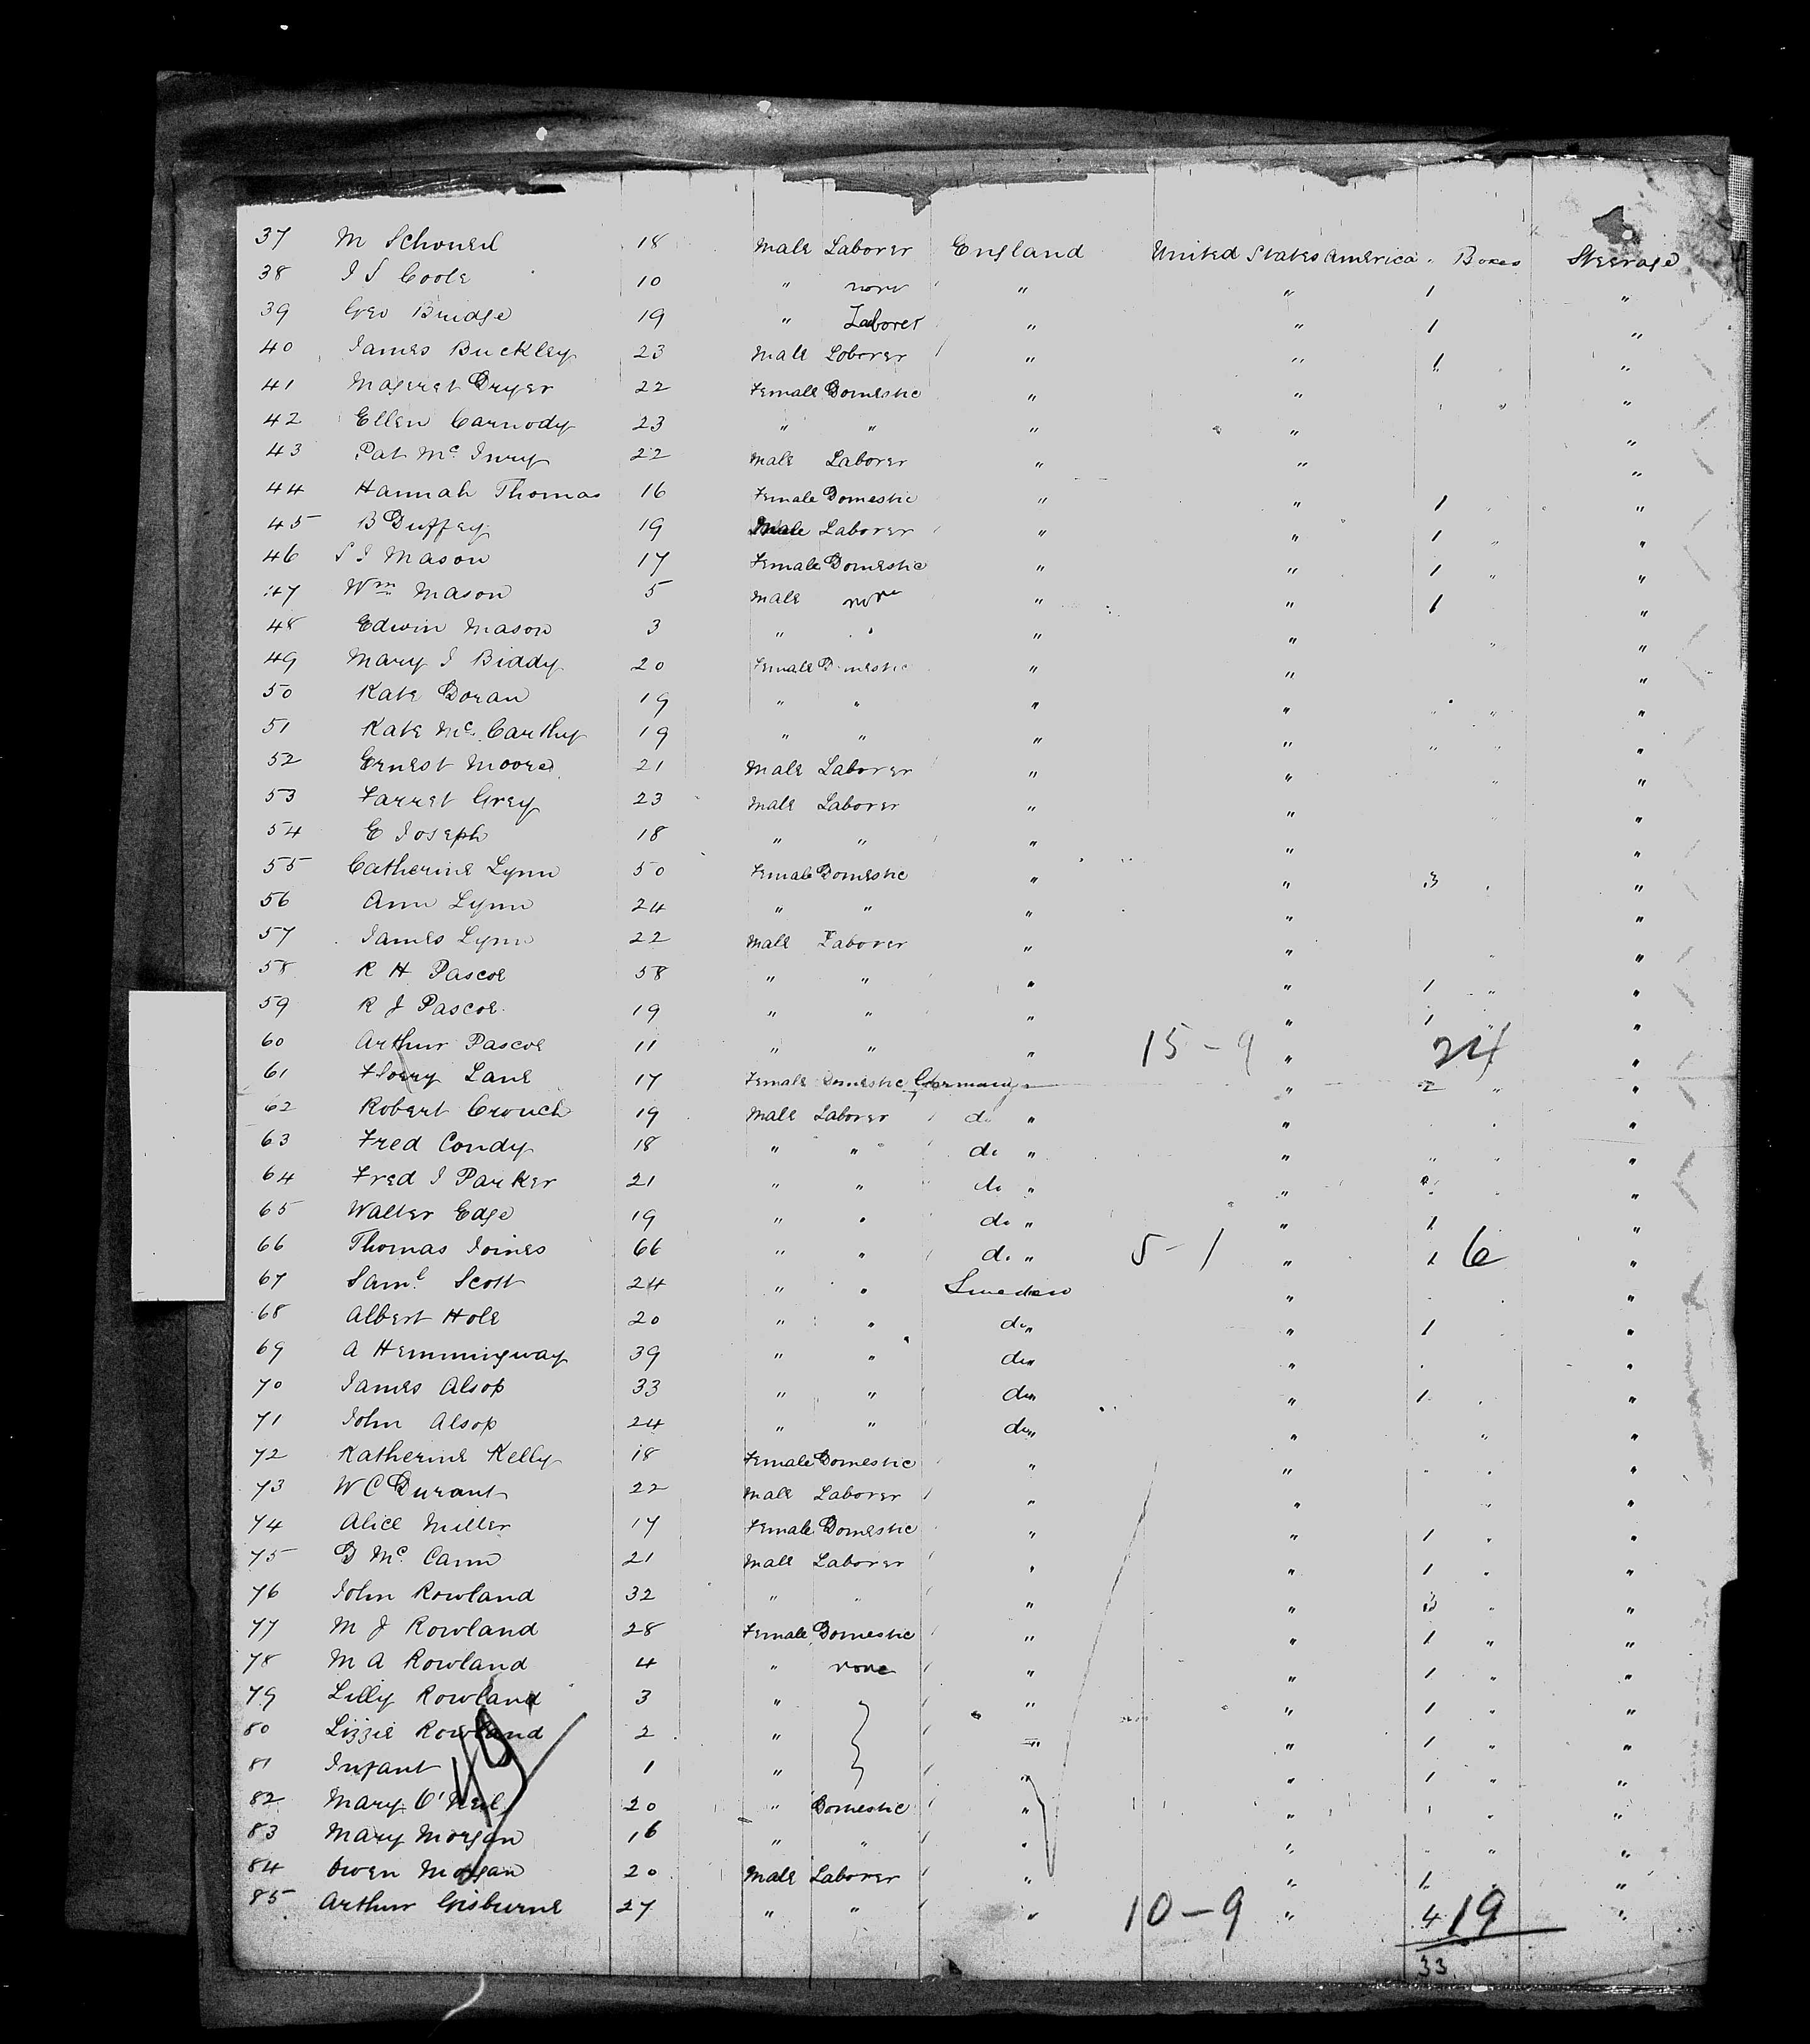 37 M Schoueil 18 Male Laborer England United States America . Boxes Steerage
38 I S Coole 10 " none " " 1 "
39 Geo Bridge 19 " Laborer " " 1 "
40 James Buckley 23 Male Loborer " " 1 "
41 Mageret Dryer 22 Female Domestic " " "
42 Ellen Carnody 23 " " " " "
43 Pat Mc Inry 22 Male Laborer " " "
44 Hannah Thomas 16 Female Domestic " " 1 "
45 B Duffey 19 Male Laborer " " 1 " "
46 S I Mason 17 Female Domestic " " 1 " "
47 Wm Mason 5 Male none " " 1 "
48 Edwin Mason 3 " " " " " "
49 Mary I Biddy 20 Female Domestic " " "
50 Kate Doran 19 " " " " " " "
51 Kate Mc Carthy 19 " " " " " " "
52 Ernest Moore 21 Male Laborer " " " "
53 Farret Grey 23 Male Laborer " " "
54 E Joseph 18 " " " " "
55 Catherine Lynn 50 Female Domestic " " 3 "
56 Ann Lynn 24 " " " " "
57 James Lynn 22 Male Laborer " " "
58 R H Pascoe 58 " " " " 1 " "
59 R J Pascoe 19 " " " " 1 " "
60 Arthur Pascoe 11 " " " 15-9 " 24 "
61 Florry Lane 17 Female Domestic Germany " 2 " "
62 Robert Crouch 19 Male Laborer do " " "
63 Fred Condy 18 " " do " " " " "
64 Fred I Parker 21 " " do " " "
65 Walter Edge 19 " " do " " 1 "
66 Thomas Joines 66 " " do " 5-1 " 1 6 "
67 Saml Scott 24 " " Sweden " "
68 Albert Hole 20 " " do " " 1 "
69 A Hemmingway 39 " " do " " "
70 James Alsop 33 " " do " " 1 "
71 John Alsop 24 " " do " " " "
72 Katherine Kelly 18 Female Domestic " " "
73 W C Durant 22 Male Laborer " " " "
74 Alice Miller 17 Female Domestic " " 1 " "
75 D Mc Cann 21 Male Laborer " " 1 " "
76 John Rowland 32 " " " " 3 " "
77 M J Rowland 28 Female Domestic " " 1 " "
78 M A Rowland 4 " none " " 1 " "
79 Lilly Rowland 3 " " " 1 " "
80 Lizzie Rowland 2 " " " 1 " "
81 Infant 1 " " " 1 " "
82 Mary O'Neil 20 " Domestic " " 1 " "
83 Mary Morgan 16 " " " " " " "
84 Owen Morgan 20 Male Laborer " " 1 "
85 Arthur Gisburne 27 " " " 10-9 " 4 19 "
33